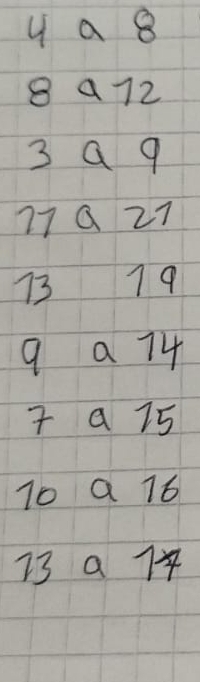 4 a 8
8 a 12
3 a 9
11 a 21
13 19
9 a 14
7 a 15
10 a 16
13 a 17